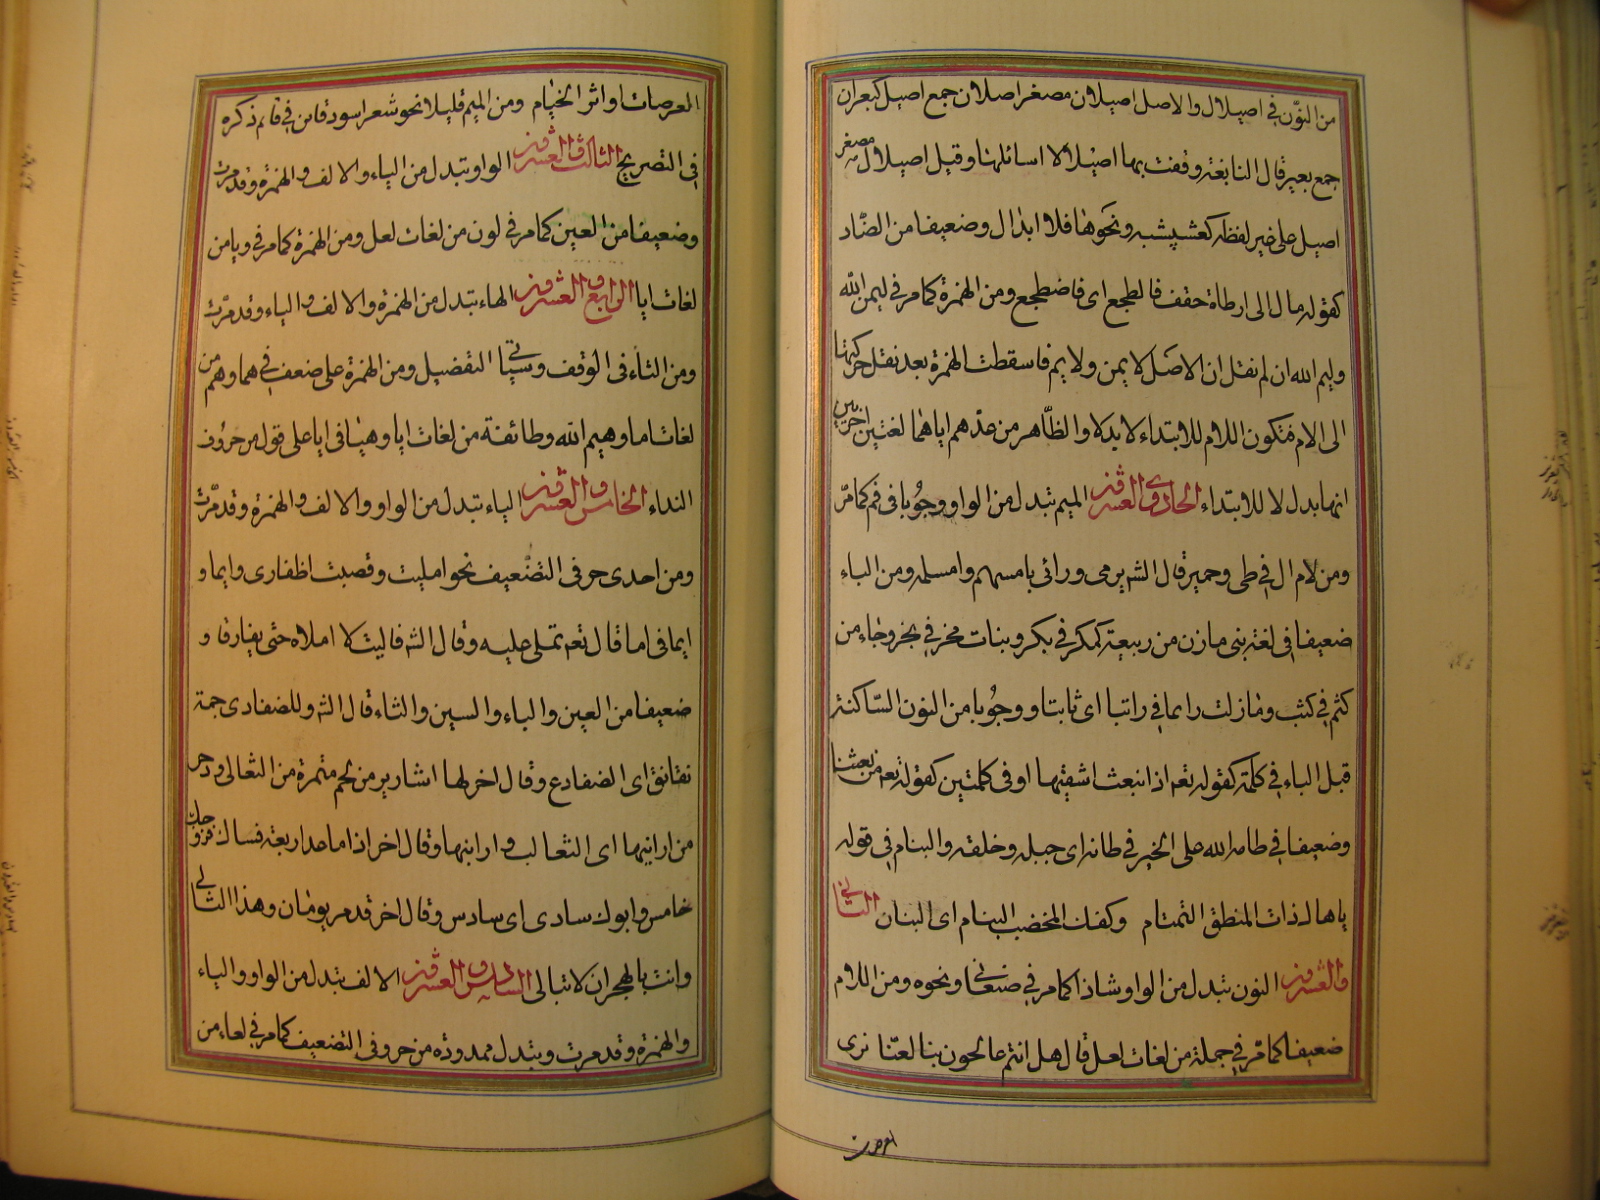 من النّون في اصيلال والاصل اصيلان مصغر اصلان جمع اصيل كبعران
جمع بعير قال النابغة وقفت بها اصيلالا اسائلها وقيل اصيلال مصغر
اصيل على غير لفظه كعشيشيه ونحوها فلا ابدال وضعيفا من الضّاد
كقوله مال الى ارطاة حقف فالطجع اى فاضطجع ومن الهمزة كما مر في ليمن الله
وليم الله ان لم نقل ان الاصل لايمن ولايم فاسقطت الهمزة بعد نقل حركتها
الى الام فتكون اللام للابتداء لا بدلا والظّاهر من عدهم اياهما لغتين اخريين
انها بدل لا للابتداء الحادى والعشرون الميم تبدل من الواو وجُوبا في فم كما مرّ
ومن لام ال في طى وحمير قال الشه يرمى ورائى بامسهم وامسلمه ومن الباء
ضعيفا في لغة بنى مازن من ربيعة كمكر في بكر وبنات مخر في بخر وجاء من
كثم في كثب وما زلت راتما في راتبا اى ثابتا ووجُوبا من النون السّاكنة
قبل الباء في كلمة كقوله تعه اذ انبعث اشقيها او في كلمتين كقوله تعه من بعثنا
وضعيفا في طامه الله على الخير في طانه اى جبله وخلقه والبنام في قوله
ياهال ذات المنطق التمتام وكفك المخضب البنام اى البنان الثانى
والعشرون النون تبدل من الواو شاذا كما مر في صنعانى ونحوه ومن اللام
ضعيفا كما مرّ في جملة من لغات لعل قال هل انتم عالجون بنا لعنّا نرى
العرصات
العرصات او اثر الخيام ومن الميم قليلا نحو شعر اسود قاتن في قاتم ذكره
في التصريح الثالث والعشرون الواو تبدل من الياء والالف والهمزة وقد مرت
وضعيفا من العين كما مر في لون من لغات لعل ومن الهمزة كما مر في ويا من
لغات ايا الرابع والعشرون الهاء تبدل من الهمزة والالف والياء وقد مرّت
ومن التاء في الوقف وسيأتى التفضيل ومن الهمزة على ضعف في هما وهم من
لغات اما وهيم الله وطائفة من لغات ايا وهيا في ايا على قول من حروف
النداء الخامس والعشرون الياء تبدل من الواو والالف والهمزة وقد مرّت
ومن احدى حرفى التضعيف نحو امليت وقصيت اظفارى وايما و
ايما في اما قال تعه تملى عليه وقال الشه فاليت لا املاه حتى يفارقا و
ضعيفا من العين والباء والسين والثاء قال الشه وللضفادى جمة
نقانق اى الضفادع وقال اخر لها اشارير من لحم متمرة من الثعالى ووخز
من ارانيها اى الثعالب وارانبها وقال اخر اذا ما عد اربعة فسال فزوجك
خامس وابوك سادى اى سادس وقال اخر قد مر يومان وهذا الثالى
وانت بالهجران لا تبالى السادس والعشرون الالف تبدل من الواو والياء
والهمزة وقد مرت وتبدل ممدودة من حروفى التضعيف كما مر في لعاء من